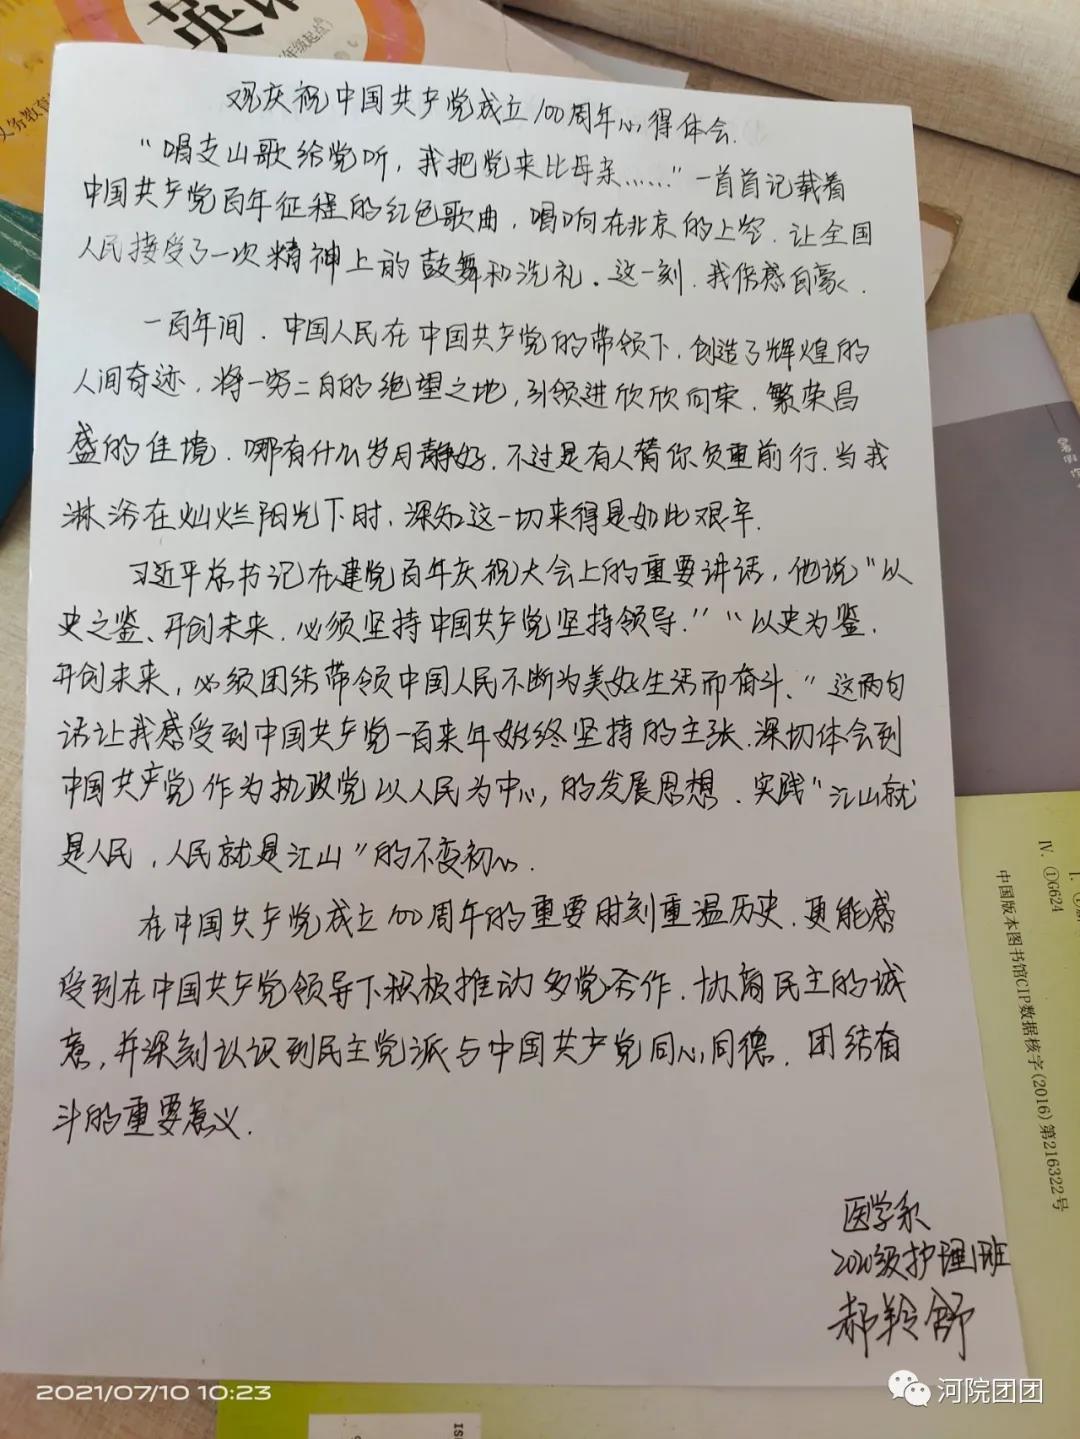 英
年级起点
义务教育
观庆祝中国共产党成立100周年心得体会.
“唱支山歌给党听，我把党来比母亲……”一首首记载着
中国共产党百年征程的红色歌曲，唱响在北京的上空.让全国
人民接受了一次精神上的鼓舞和洗礼。这一刻.我倍感自豪.
一百年间.中国人民在中国共产党的带领下.创造了辉煌的
人间奇迹.将一穷二白的绝望之地，引领进欣欣向荣.繁荣昌
盛的佳境.哪有什么岁月静好.不过是有人替你负重前行.当我
淋浴在灿烂阳光下时.深知这一切来得是如此艰辛.
习近平总书记在建党百年庆祝大会上的重要讲话，他说“以
史之鉴、开创未来.必须坚持中国共产党坚持领导.”“以史为鉴.
开创未来，必须团结带领中国人民不断为美好生活而奋斗、”这两句
话让我感受到中国共产党一百来年始终坚持的主张.深切体会到
中国共产党作为执政党以人民为中心，的发展思想.实践“江山就
是人民，人民就是江山”的不变初心.
在中国共产党成立100周年的重要时刻重温历史.更能感
受到在中国共产党领导下积极推动多党合作.协商民主的诚
意，并深刻认识到民主党派与中国共产党同心同德.团结奋
斗的重要意义.
医学系
2020级护理1班
郝羚舒
Ⅳ.①G624
中国版本图书馆CIP数据核字(2016)第216322号
2021/07/10 10:23
河院团团